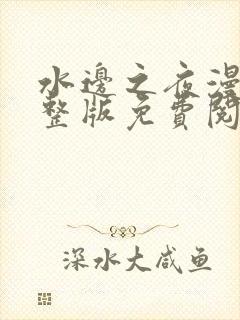 水邊之夜漫
整版免費閱
深水大咸鱼